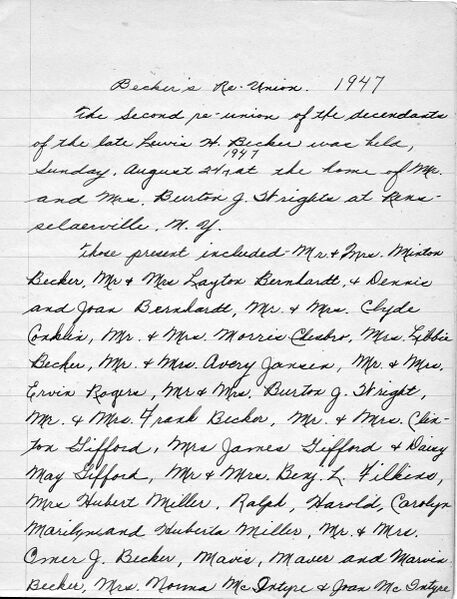 Becker's Re-Union. 1947
The Second re-union of the decendants
of the late Lewis H. Becker was held,
Sunday, August 24, 1947 at the home of Mr.
and Mrs. Burton J. Wrights at Rens-
selaerville, N.Y.
Those present included - Mr. & Mrs. Minton
Becker, Mr & Mrs Layton Bernhardt, & Dennis
and Joan Bernhardt, Mr. & Mrs. Clyde
Conklin, Mr. & Mrs. Morris Chesbro, Mrs. Libbie
Becker, Mr. & Mrs. Avery Jansen, Mr. & Mrs.
Ervin Rogers, Mr & Mrs. Burton J. Wright,
Mr. & Mrs. Frank Becker, Mr. & Mrs. Clin-
ton Gifford, Mrs James Gifford & Daisy
May Gifford, Mr & Mrs. Benj. L. Filkins,
Mrs Hubert Miller, Ralph, Harold, Carolyn
Marilyn and Huberta Miller, Mr. & Mrs.
Omer J. Becker, Mavis, Maver and Marvin
Becker, Mrs. Norma McIntyre & Joan McIntyre